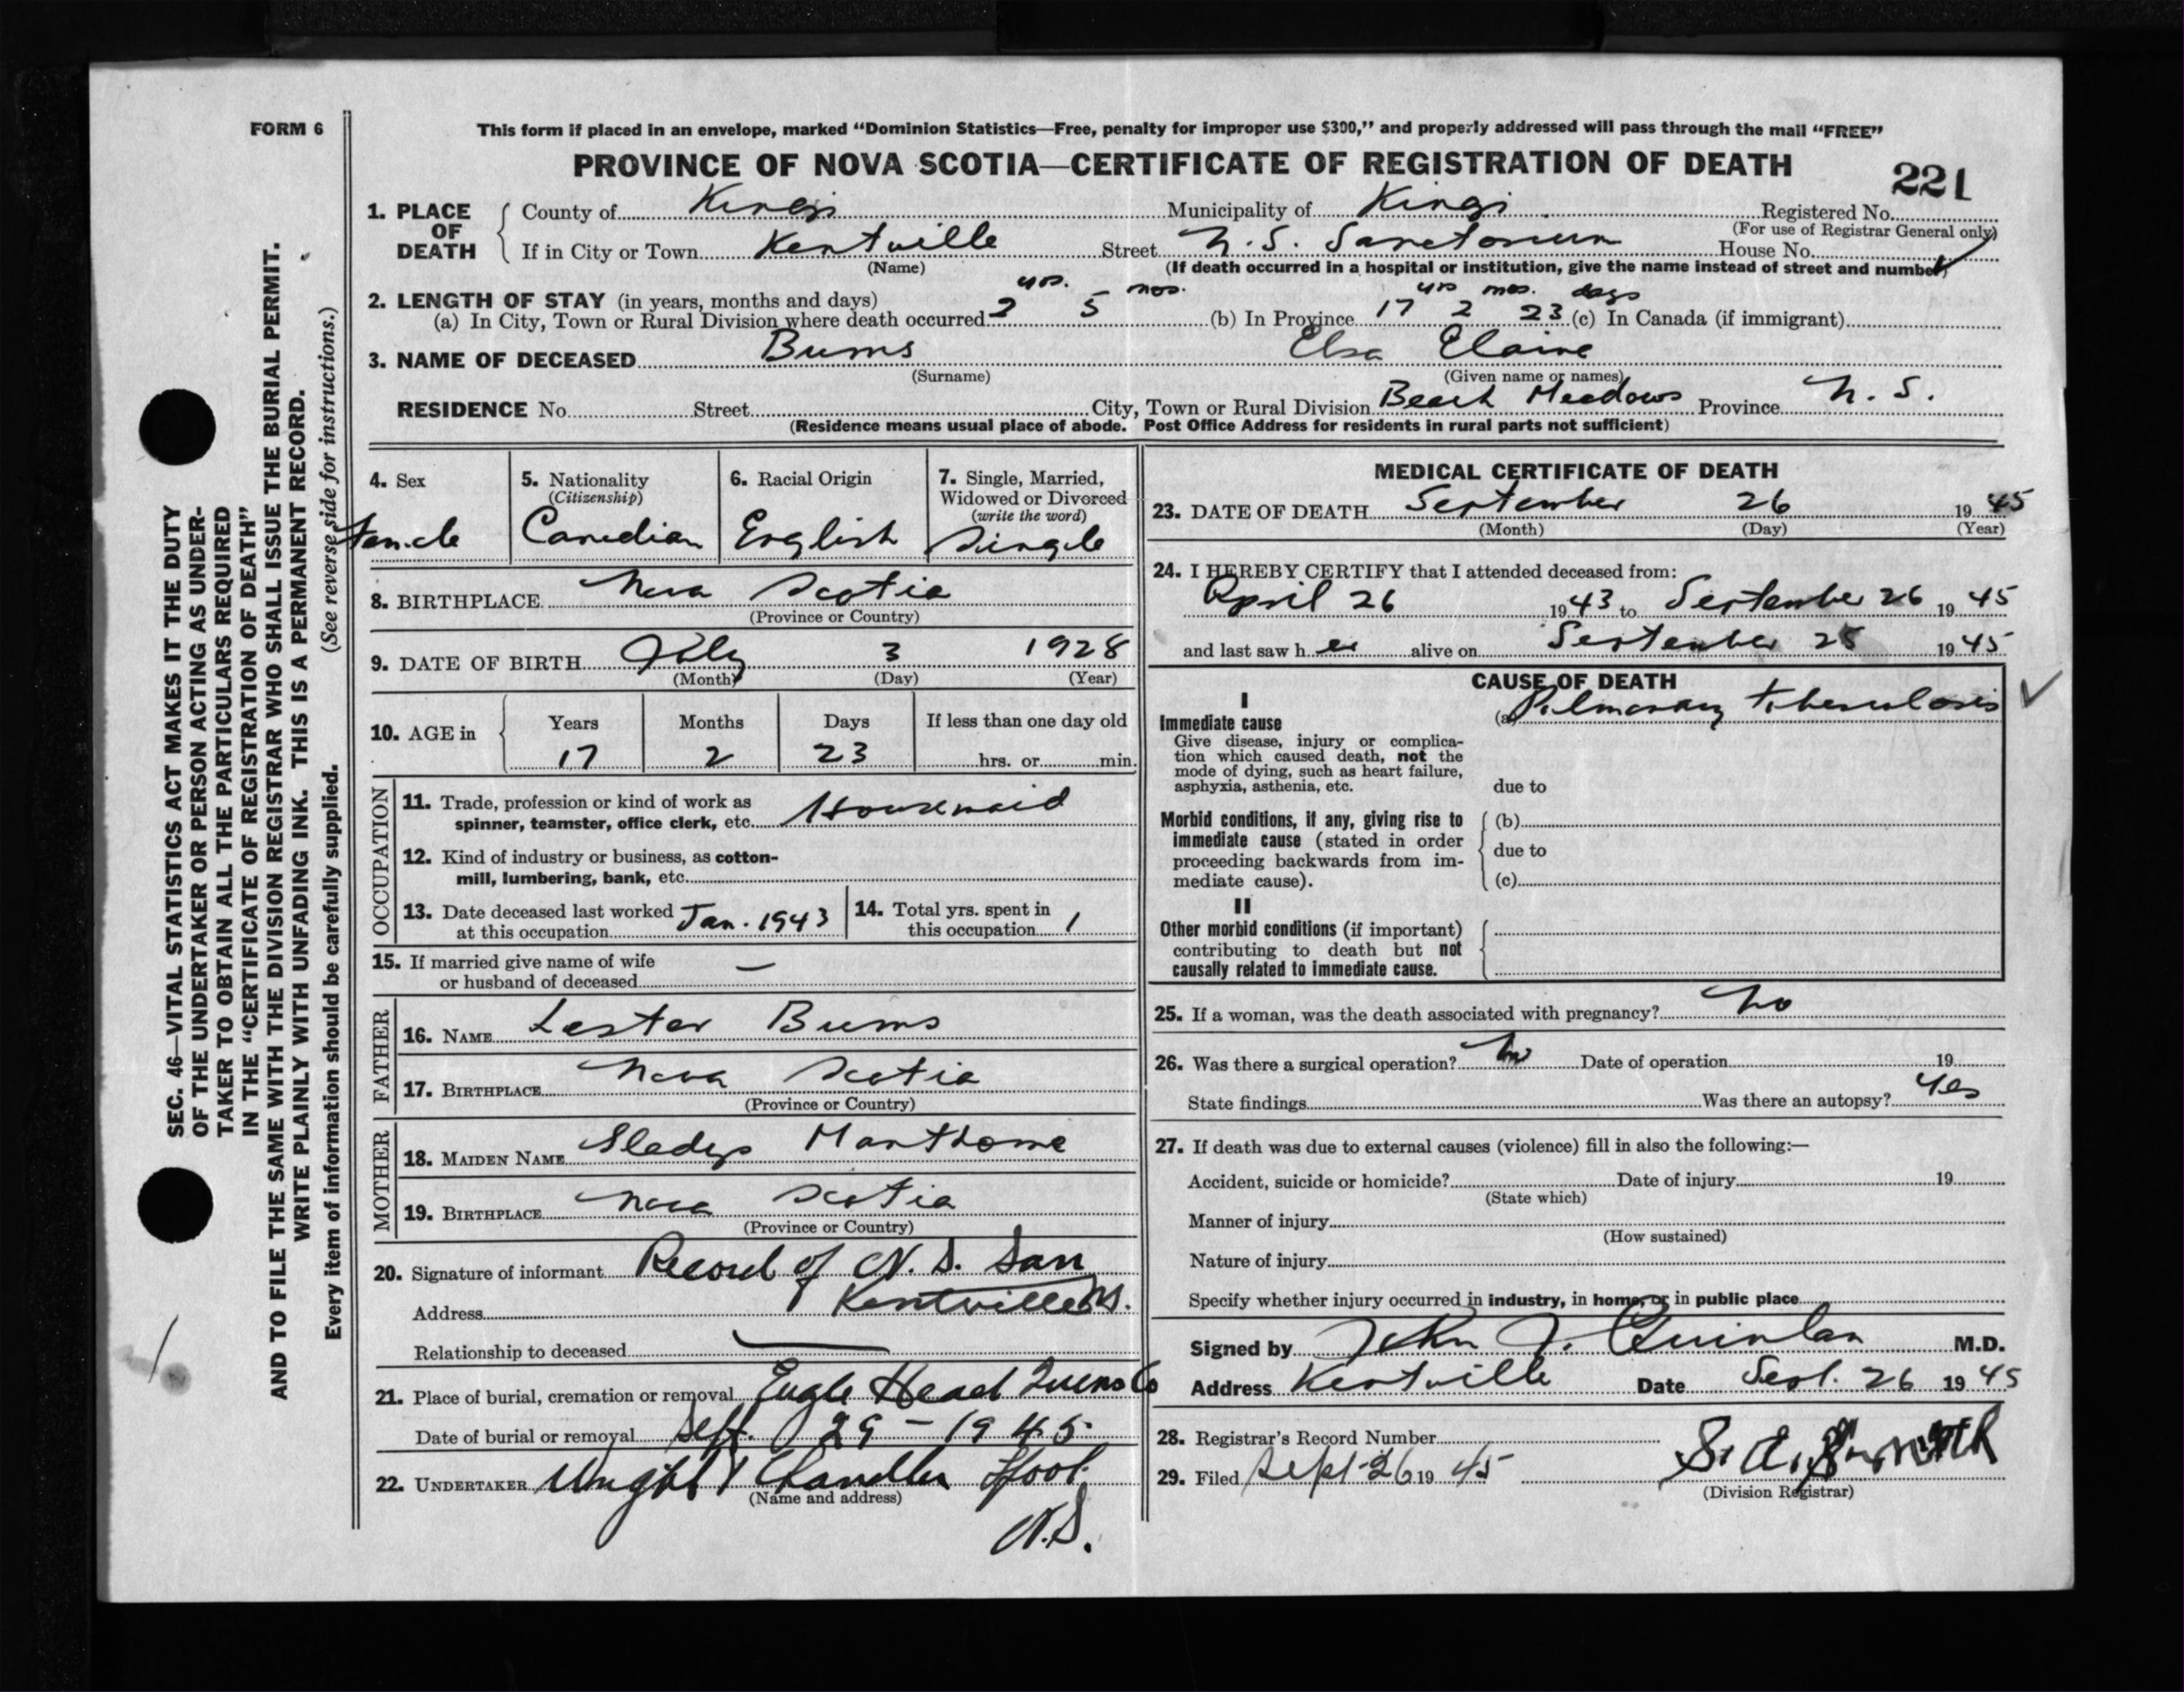 FORM 6
This form if placed in an envelope, marked “Dominion Statistics—Free, penalty for improper use $300,” and properly addressed will pass through the mail “FREE”
PROVINCE OF NOVA SCOTIA—CERTIFICATE OF REGISTRATION OF DEATH
221
1. PLACE OF DEATH
County of Kings Municipality of Kings Registered No.
(For use of Registrar General only)
If in City or Town Kentville Street N. S. Sanatorium House No.
(Name) (If death occurred in a hospital or institution, give the name instead of street and number)
2. LENGTH OF STAY (in years, months and days)
yrs. mos. yrs mos. days
(a) In City, Town or Rural Division where death occurred 2 5 (b) In Province 17 2 23 (c) In Canada (if immigrant)
3. NAME OF DECEASED Burns Elsa Elaine
(Surname) (Given name or names)
RESIDENCE No. Street City, Town or Rural Division Beach Meadows Province N. S.
(Residence means usual place of abode. Post Office Address for residents in rural parts not sufficient)
4. Sex
Female
5. Nationality
(Citizenship)
Canadian
6. Racial Origin
English
7. Single, Married,
Widowed or Divorced
(write the word)
Single
8. BIRTHPLACE Nova Scotia
(Province or Country)
9. DATE OF BIRTH July 3 1928
(Month) (Day) (Year)
10. AGE in
Years Months Days If less than one day old
17 2 23 hrs. or min.
OCCUPATION
11. Trade, profession or kind of work as
spinner, teamster, office clerk, etc. Housemaid
12. Kind of industry or business, as cotton-
mill, lumbering, bank, etc.
13. Date deceased last worked
at this occupation Jan. 1943
14. Total yrs. spent in
this occupation 1
15. If married give name of wife
or husband of deceased —
FATHER
16. NAME Lester Burns
17. BIRTHPLACE Nova Scotia
(Province or Country)
MOTHER
18. MAIDEN NAME Gladys Manthorne
19. BIRTHPLACE Nova Scotia
(Province or Country)
20. Signature of informant Record of N. S. San
Address Kentville N.S.
Relationship to deceased —
21. Place of burial, cremation or removal Eagle Head Queens Co
Date of burial or removal Sept. 29 - 1945
22. UNDERTAKER Wright Chandler
(Name and address)
N.S.
MEDICAL CERTIFICATE OF DEATH
23. DATE OF DEATH September 26 1945
(Month) (Day) (Year)
24. I HEREBY CERTIFY that I attended deceased from:
April 26 1943 to September 26 1945
and last saw her alive on September 25 1945
CAUSE OF DEATH
I
Immediate cause
Give disease, injury or complica-
tion which caused death, not the
mode of dying, such as heart failure,
asphyxia, asthenia, etc.
(a) Pulmonary tuberculosis
due to
Morbid conditions, if any, giving rise to
immediate cause (stated in order
proceeding backwards from im-
mediate cause).
(b)
due to
(c)
II
Other morbid conditions (if important)
contributing to death but not
causally related to immediate cause.
25. If a woman, was the death associated with pregnancy? No
26. Was there a surgical operation? No Date of operation 19
State findings Was there an autopsy? Yes
27. If death was due to external causes (violence) fill in also the following:—
Accident, suicide or homicide? Date of injury 19
(State which)
Manner of injury
(How sustained)
Nature of injury
Specify whether injury occurred in industry, in home, or in public place
Signed by John J. Quinlan M.D.
Address Kentville Date Sept. 26 1945
28. Registrar's Record Number
29. Filed Sept 26 1945
(Division Registrar)
SEC. 46—VITAL STATISTICS ACT MAKES IT THE DUTY
OF THE UNDERTAKER OR PERSON ACTING AS UNDER-
TAKER TO OBTAIN ALL THE PARTICULARS REQUIRED
IN THE “CERTIFICATE OF REGISTRATION OF DEATH”
AND TO FILE THE SAME WITH THE DIVISION REGISTRAR WHO SHALL ISSUE THE BURIAL PERMIT.
WRITE PLAINLY WITH UNFADING INK. THIS IS A PERMANENT RECORD.
Every item of information should be carefully supplied. (See reverse side for instructions.)